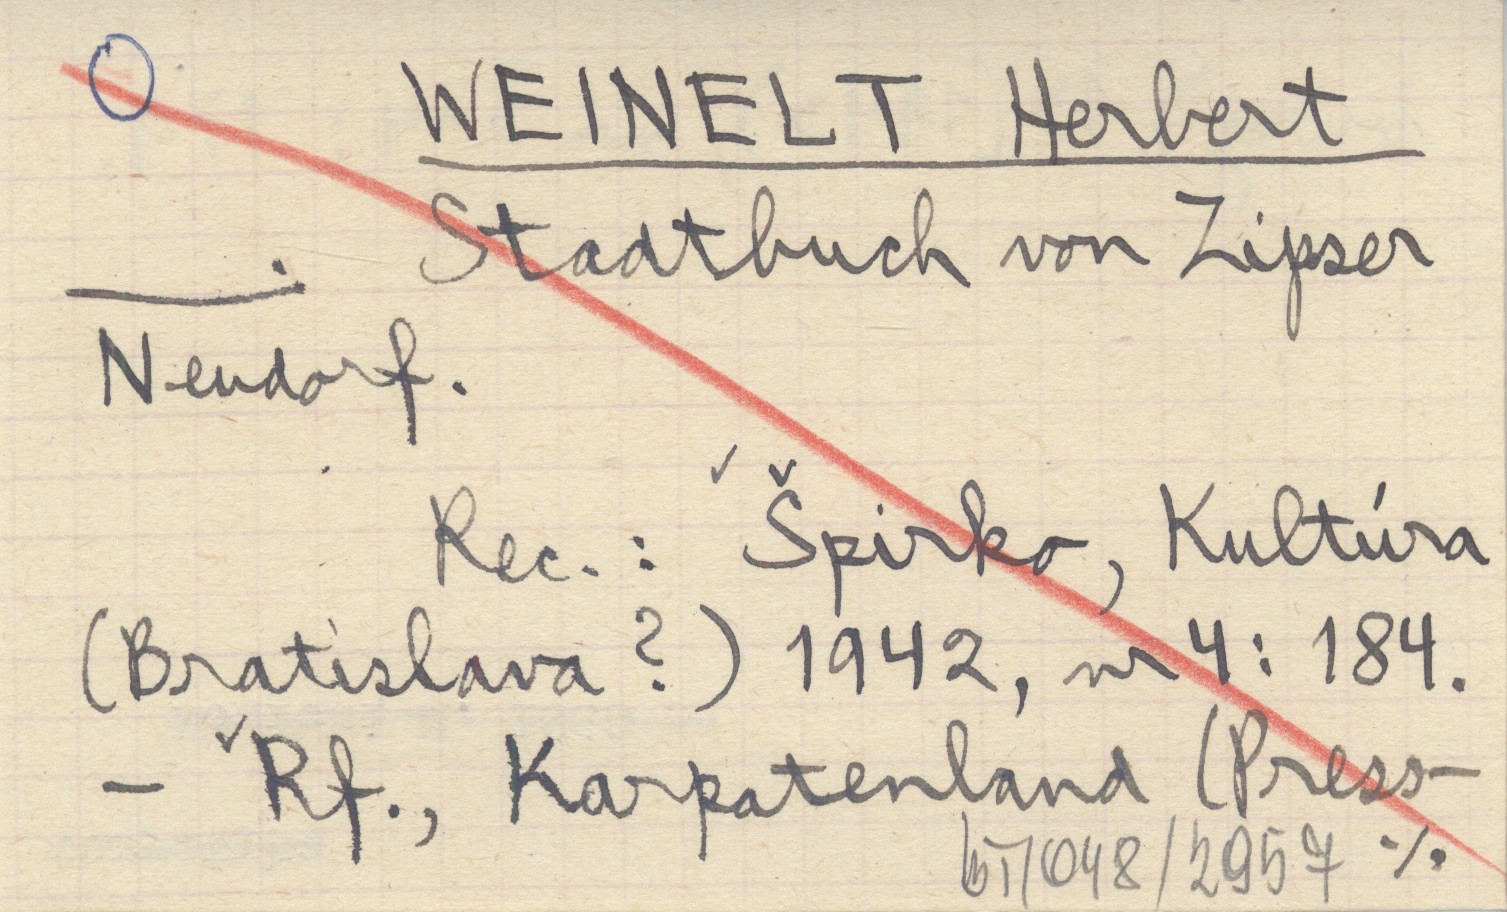 WEINELT Herbert
Stadtbuch von Zipser
Neudorf.
Rec.: Špirko, Kultúra
(Bratislava?) 1942, nr 4: 184.
- Rf., Karpatenland (Press-
048/2957 ·/.